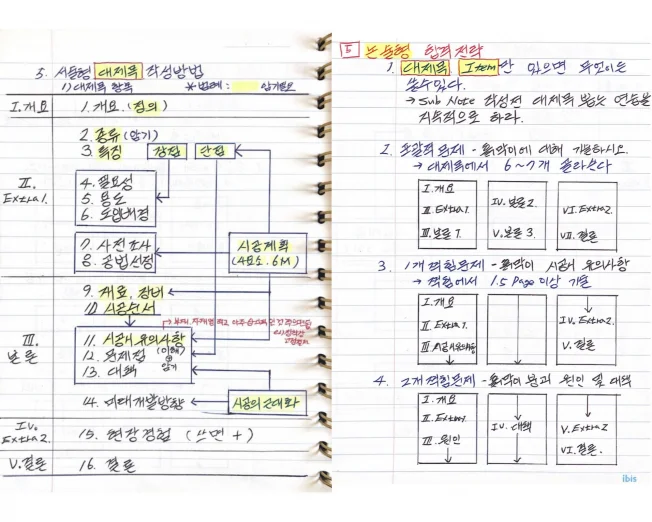 5. 서술형 대제목 작성방법
1) 대제목 항목 *범례: 암기필요
I.개요 1. 개요. (정의)
2. 종류 (암기)
3. 특징 장점 단점
II. Extra1.
4. 필요성
5. 용도
6. 도입배경
7. 사전조사
8. 공법선정
시공계획
(4요소. 6M)
9. 재료, 장비
10. 시공순서
III. 본론
11. 시공시 유의사항
12. 문제점 (이해)
13. 대책 암기
14. 미래개발방향 시공의 근대화
IV. Extra2. 15. 현장경험 (쓰면 +)
V.결론 16. 결론
5 논술형 합격전략
1. 대제목 Item만 있으면 무엇이든
쓸수있다.
→ Sub Note 작성전 대제목 뽑는 연습을
지속적으로 하라.
2. 포괄적 문제 - 에 대해 기술하시오.
→ 대제목에서 6~7개 골라쓴다
I. 개요
II. Extra1.
III. 본론 1.
IV. 본론2.
V. 본론 3.
VI. Extra2.
VII. 결론
3. 1개 적힌문제 - 시공시 유의사항
→ 적힌에서 1.5 Page 이상 기술
I. 개요
II. Extra1.
III. 시공시유의사항
IV. Extra2.
V. 결론
4. 2개적힌문제 - 원인 및 대책
I. 개요
II. Extra1.
III. 원인
IV. 대책
V. Extra2
VI. 결론.
ibis